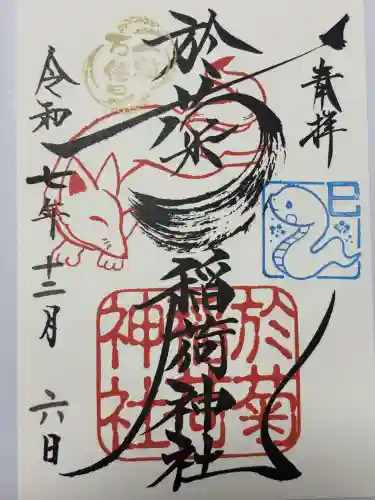 奉拝
巳
於菊
稲荷神社
於菊
稲荷
神社
一粒
万倍日
令和七年十二月六日